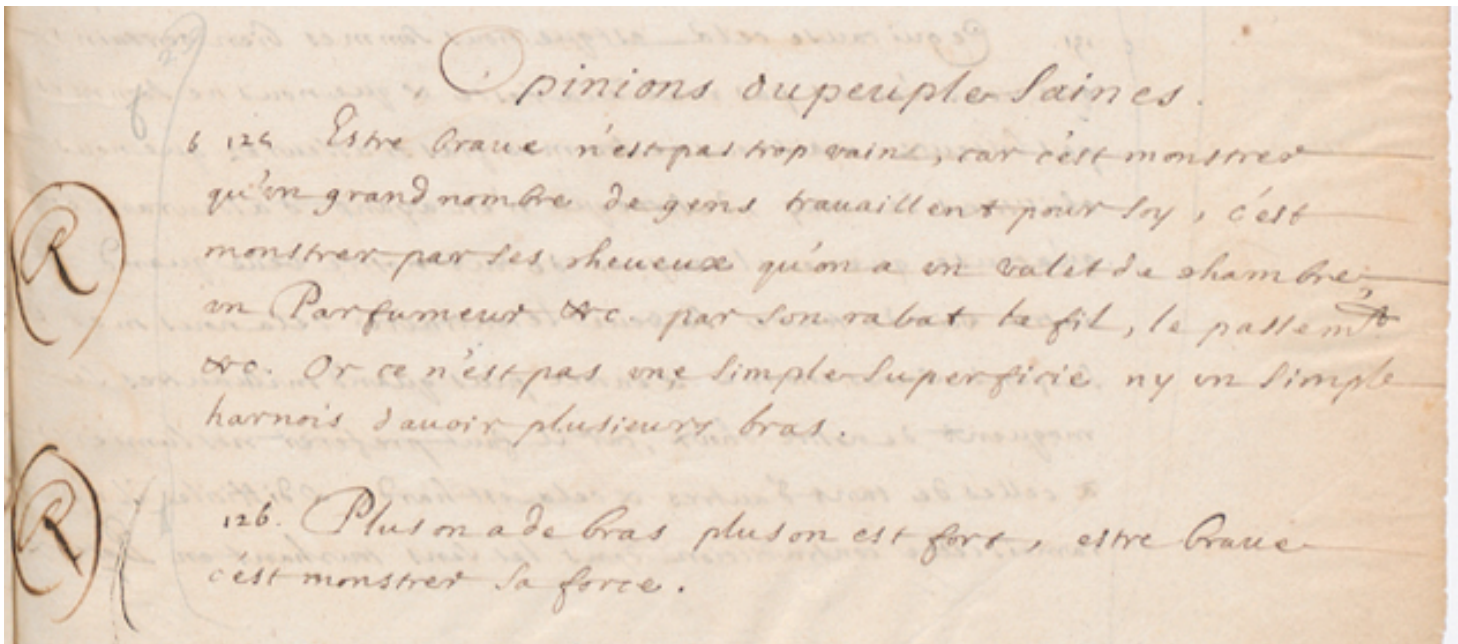 Opinions du peuple Saines.
6 125 Estre braue n'est pas trop vain, car c'est monstrer
qu'vn grand nombre de gens trauaillent pour soy, c'est
monstrer par ses cheueux qu'on a vn valet de chambre,
vn Parfumeur &c. par son rabat le fil, le passemt
&c. Or ce n'est pas vne simple superficie ny vn simple
harnois d'auoir plusieurs bras.
126. Plus on a de bras plus on est fort, estre braue
c'est monstrer sa force.
R
R